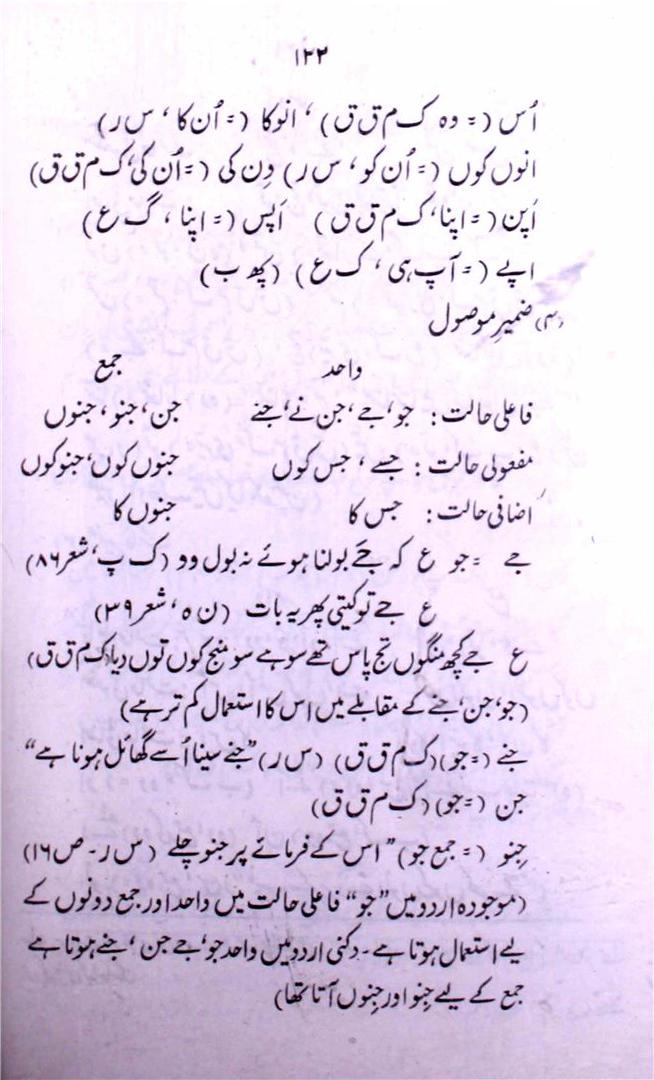 ۱۲۲
اُس (= وہ ک م ق ق) ، انوکا (= اُن کا ، س ر)
انوں کوں (= اُن کو ، س ر) دِن کی (= اُن کی ، ک م ق ق)
اَپن (= اپنا ، ک م ق ق) اَپس (= اپنا ، گ ع)
اپے (= آپ ہی ، ک ع) (پھ ب)
(۳) ضمیرِ موصول
واحد جمع
فاعلی حالت : جو ، جے ، جن نے ، جنے جن ، جنو ، جنوں
مفعولی حالت : جسے ، جس کوں جنوں کوں ، جنو کوں
اضافی حالت : جس کا جنوں کا
جے = جو ع کہ جَے بولنا ہوئے نہ بول وو (ک پ ، شعر ۸۶)
ع جے تو کیتی پھر یہ بات (ن ہ ، شعر ۳۹)
ع جے کچھ منگوں تج پاس تھے سو ہے سو منج کوں توں دیا (ک م ق ق)
(جو ، جن ، جنے کے مقابلے میں اس کا استعمال کم تر ہے)
جنے (= جو) (ک م ق ق) (س ر) ”جنے سینا اُسے گھائل ہونا ہے“
جن (= جو) (ک م ق ق)
جِنو (= جمع جو) ”اس کے فرمائے پر جنو چلے (س ر ۔ ص ۱۶)
(موجودہ اردو میں ”جو“ فاعلی حالت میں واحد اور جمع دونوں کے
لیے استعمال ہوتا ہے ۔ دکنی اردو میں واحد جو ، جے جن ، جنے ہوتا ہے
جمع کے لیے جِنو اور جِنوں آتا تھا)